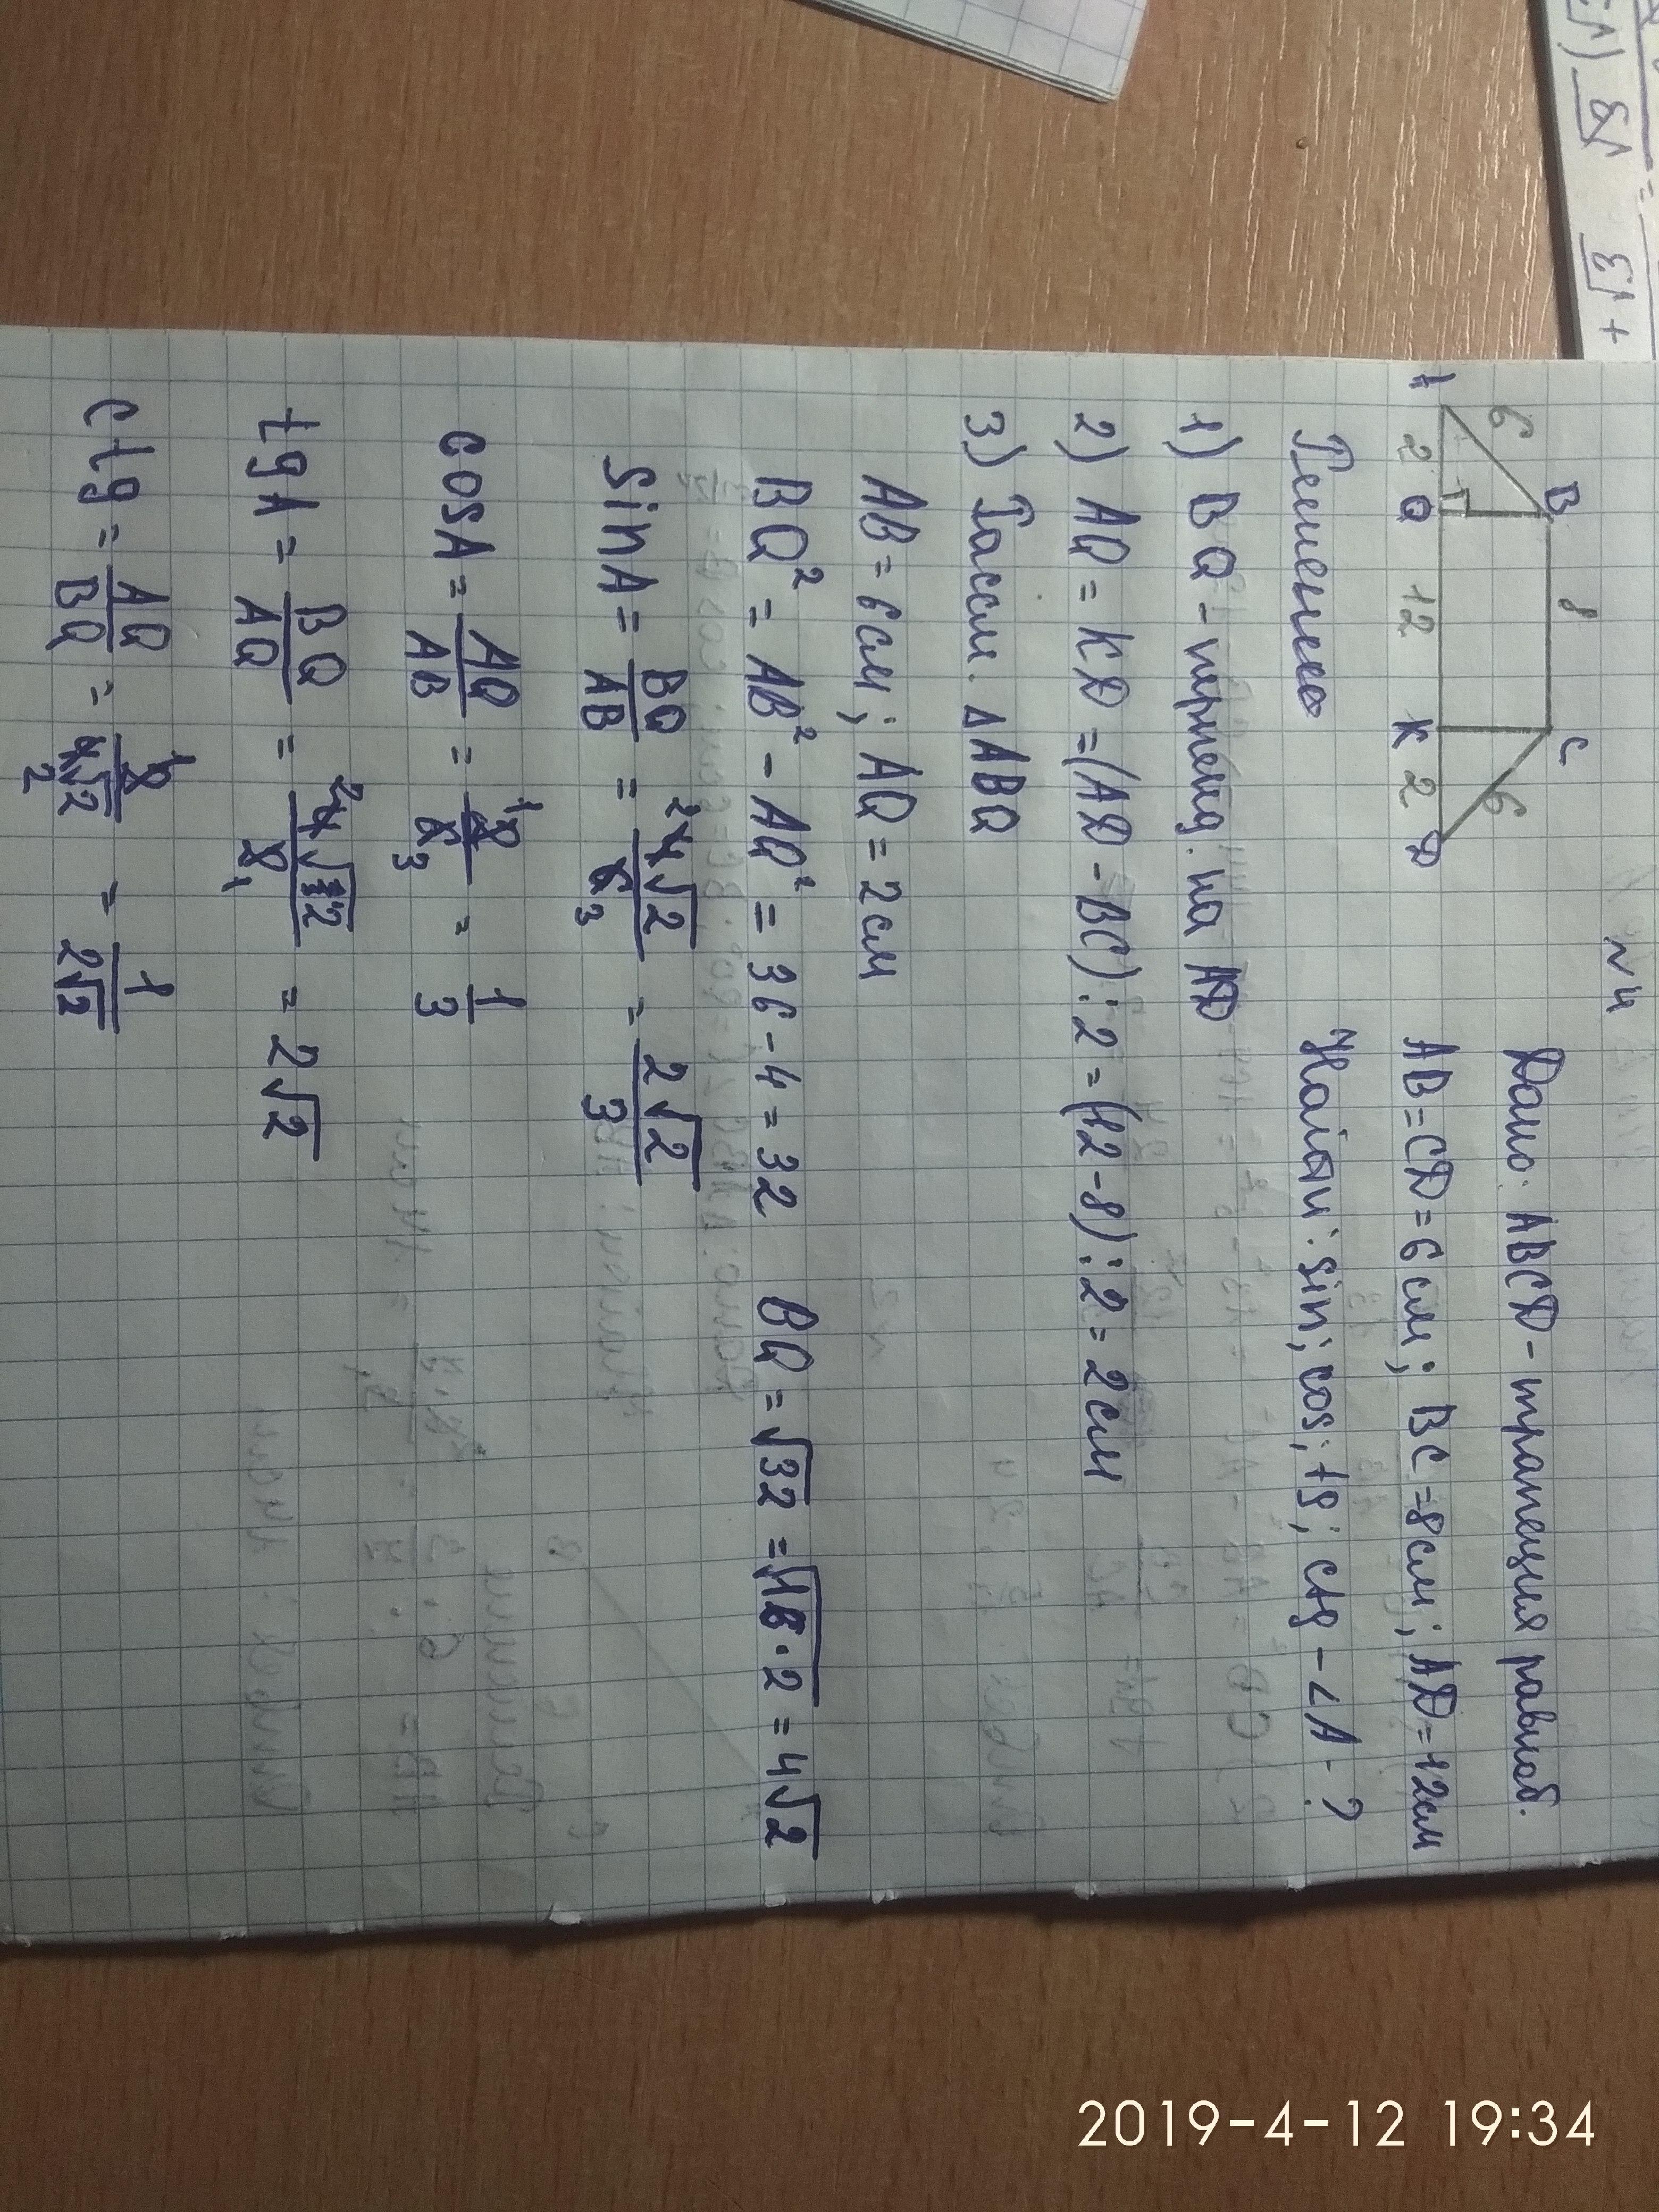 №4
B 8 C
6 6
A 2 Q 12 K 2 D
Дано: ABCD - трапеция равноб.
AB = CD = 6 см; BC = 8 см; AD = 12 см
Найти: sin; cos; tg; ctg - ∠A - ?
Решение
1) BQ - перпенд. на AD
2) AQ = KD = (AD - BC) : 2 = (12 - 8) : 2 = 2 см
3) Рассм. △ABQ
AB = 6 см; AQ = 2 см
BQ² = AB² - AQ² = 36 - 4 = 32 BQ = √32 = √16·2 = 4√2
sin A = BQ/AB = 4√2/6 = 2√2/3
cos A = AQ/AB = 2/6 = 1/3
tg A = BQ/AQ = 4√2/2 = 2√2
ctg = AQ/BQ = 2/4√2 = 1/2√2
2019-4-12 19:34